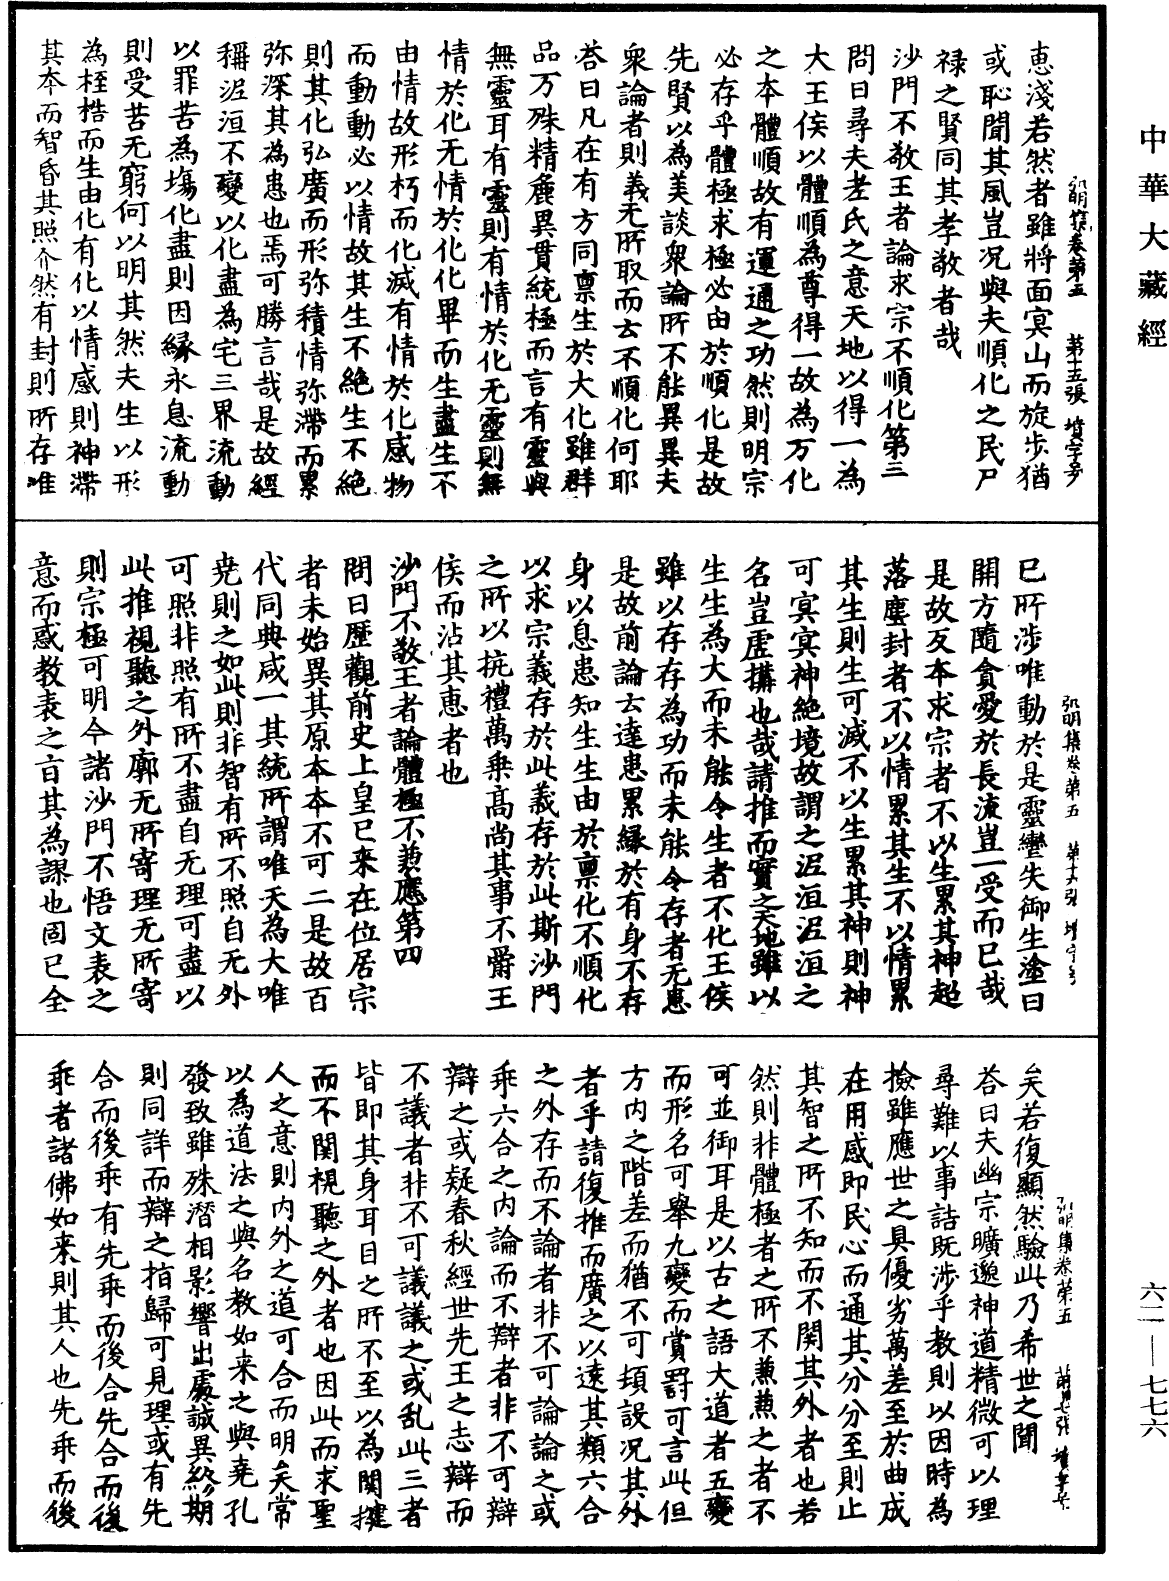 中華大藏經
弘明集卷第五 第十五張 墳字号
惠淺若然者雖將面冥山而旋步猶
或恥聞其風豈況與夫順化之民尸
禄之賢同其孝敬者哉
沙門不敬王者論求宗不順化第三
問曰尋夫老氏之意天地以得一為
大王侯以體順為尊得一故為万化
之本體順故有運通之功然則明宗
必存乎體極求極必由於順化是故
先賢以為美談衆論所不能異異夫
衆論者則義无所取而云不順化何耶
荅曰凡在有方同禀生於大化雖群
品万殊精麁異貫統極而言有靈與
無靈耳有靈則有情於化无靈則無
情於化无情於化化畢而生盡生不
由情故形朽而化滅有情於化感物
而動動必以情故其生不絶生不絶
則其化弘廣而形弥積情弥滯而累
弥深其為患也焉可勝言哉是故經
稱泥洹不變以化盡為宅三界流動
以罪苦為場化盡則因緣永息流動
則受苦无窮何以明其然夫生以形
為桎梏而生由化有化以情感則神滯
其本而智昏其照介然有封則所存唯
弘明集卷第五 第十六張 墳字号
已所涉唯動於是靈轡失御生塗日
開方隨貪愛於長流豈一受而已哉
是故反本求宗者不以生累其神超
落塵封者不以情累其生不以情累
其生則生可滅不以生累其神則神
可冥冥神絶境故謂之泥洹泥洹之
名豈虛搆也哉請推而實之天地雖以
生生為大而未能令生者不化王侯
雖以存存為功而未能令存者无患
是故前論云達患累緣於有身不存
身以息患知生生由於禀化不順化
以求宗義存於此義存於此斯沙門
之所以抗禮萬乗高尚其事不爵王
侯而沾其惠者也
沙門不敬王者論體極不兼應第四
問曰歷觀前史上皇已来在位居宗
者未始異其原本本不可二是故百
代同典咸一其統所謂唯天為大唯
堯則之如此則非智有所不照自无外
可照非照有所不盡自无理可盡以
此推視聽之外廓无所寄理无所寄
則宗極可明今諸沙門不悟文表之
意而惑教表之言其為謬也固已全
弘明集卷第五 第十七張 墳字号
矣若復顯然驗此乃希世之聞
荅曰夫幽宗曠邈神道精微可以理
尋難以事詰既涉乎教則以因時為
撿雖應世之具優劣萬差至於曲成
在用感即民心而通其分分至則止
其智之所不知而不関其外者也若
然則非體極者之所不兼兼之者不
可並御耳是以古之語大道者五變
而形名可舉九變而賞罰可言此但
方内之階差而猶不可頓設况其外
者乎請復推而廣之以遠其類六合
之外存而不論者非不可論論之或
乖六合之内論而不辯者非不可辯
辯之或疑春秋經世先王之志辯而
不議者非不可議議之或亂此三者
皆即其身耳目之所不至以為関揵
而不関視聽之外者也因此而求聖
人之意則内外之道可合而明矣常
以為道法之與名教如来之與堯孔
發致雖殊潜相影響出處誠異終期
則同詳而辯之指歸可見理或有先
合而後乖有先乖而後合先合而後
乖者諸佛如来則其人也先乖而後
六二—七七六